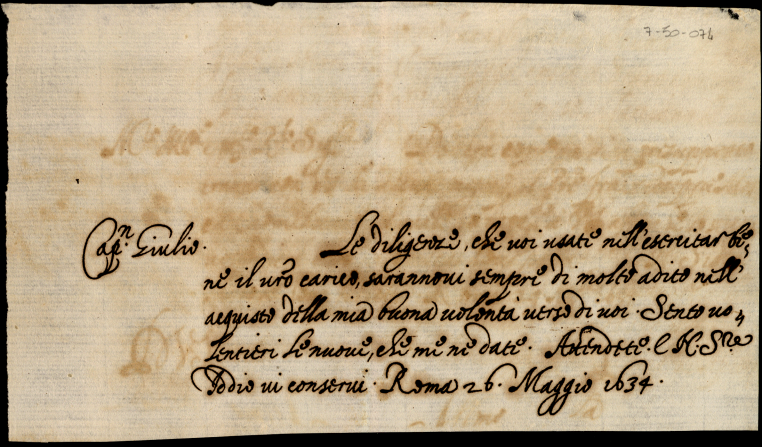 7-50-074
Cap.n Giulio. Le diligenze, che voi usate nell'esercitar be-
ne il vro carico, sarannovi sempre di molto adito nell'
acquisto della mia buona volontà verso di voi. Sento vo-
lentieri le nuove, che me ne date. Attendete. E N. S.re
Iddio vi conservi. Roma 26. Maggio 1634.